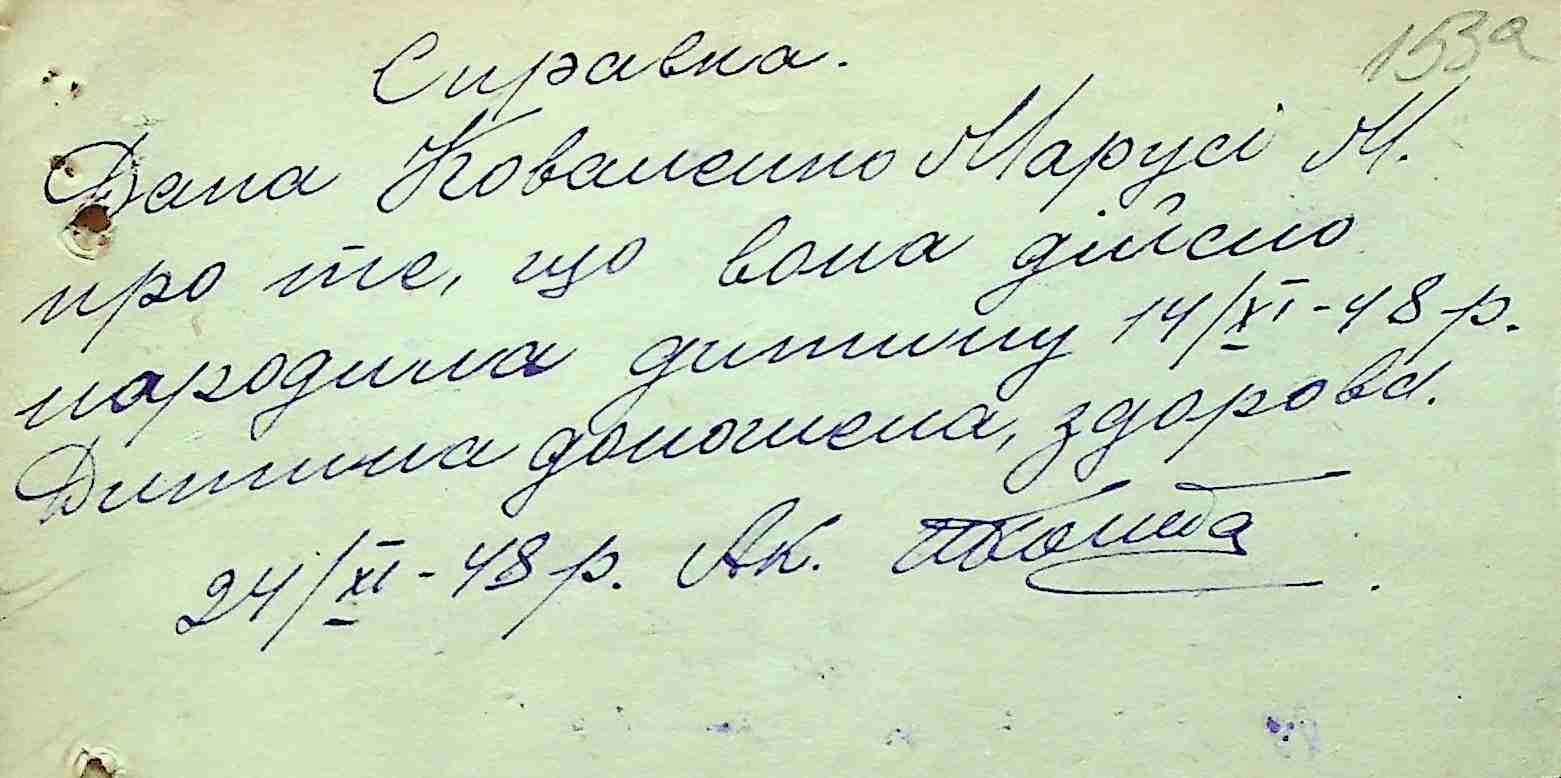 153а
Справка.
Дана Коваленко Марусі М.
про те, що вона дійсно
народила дитину 14/XI-48 р.
Дитина доношена, здорова.
24/XI-48 р. Ак.